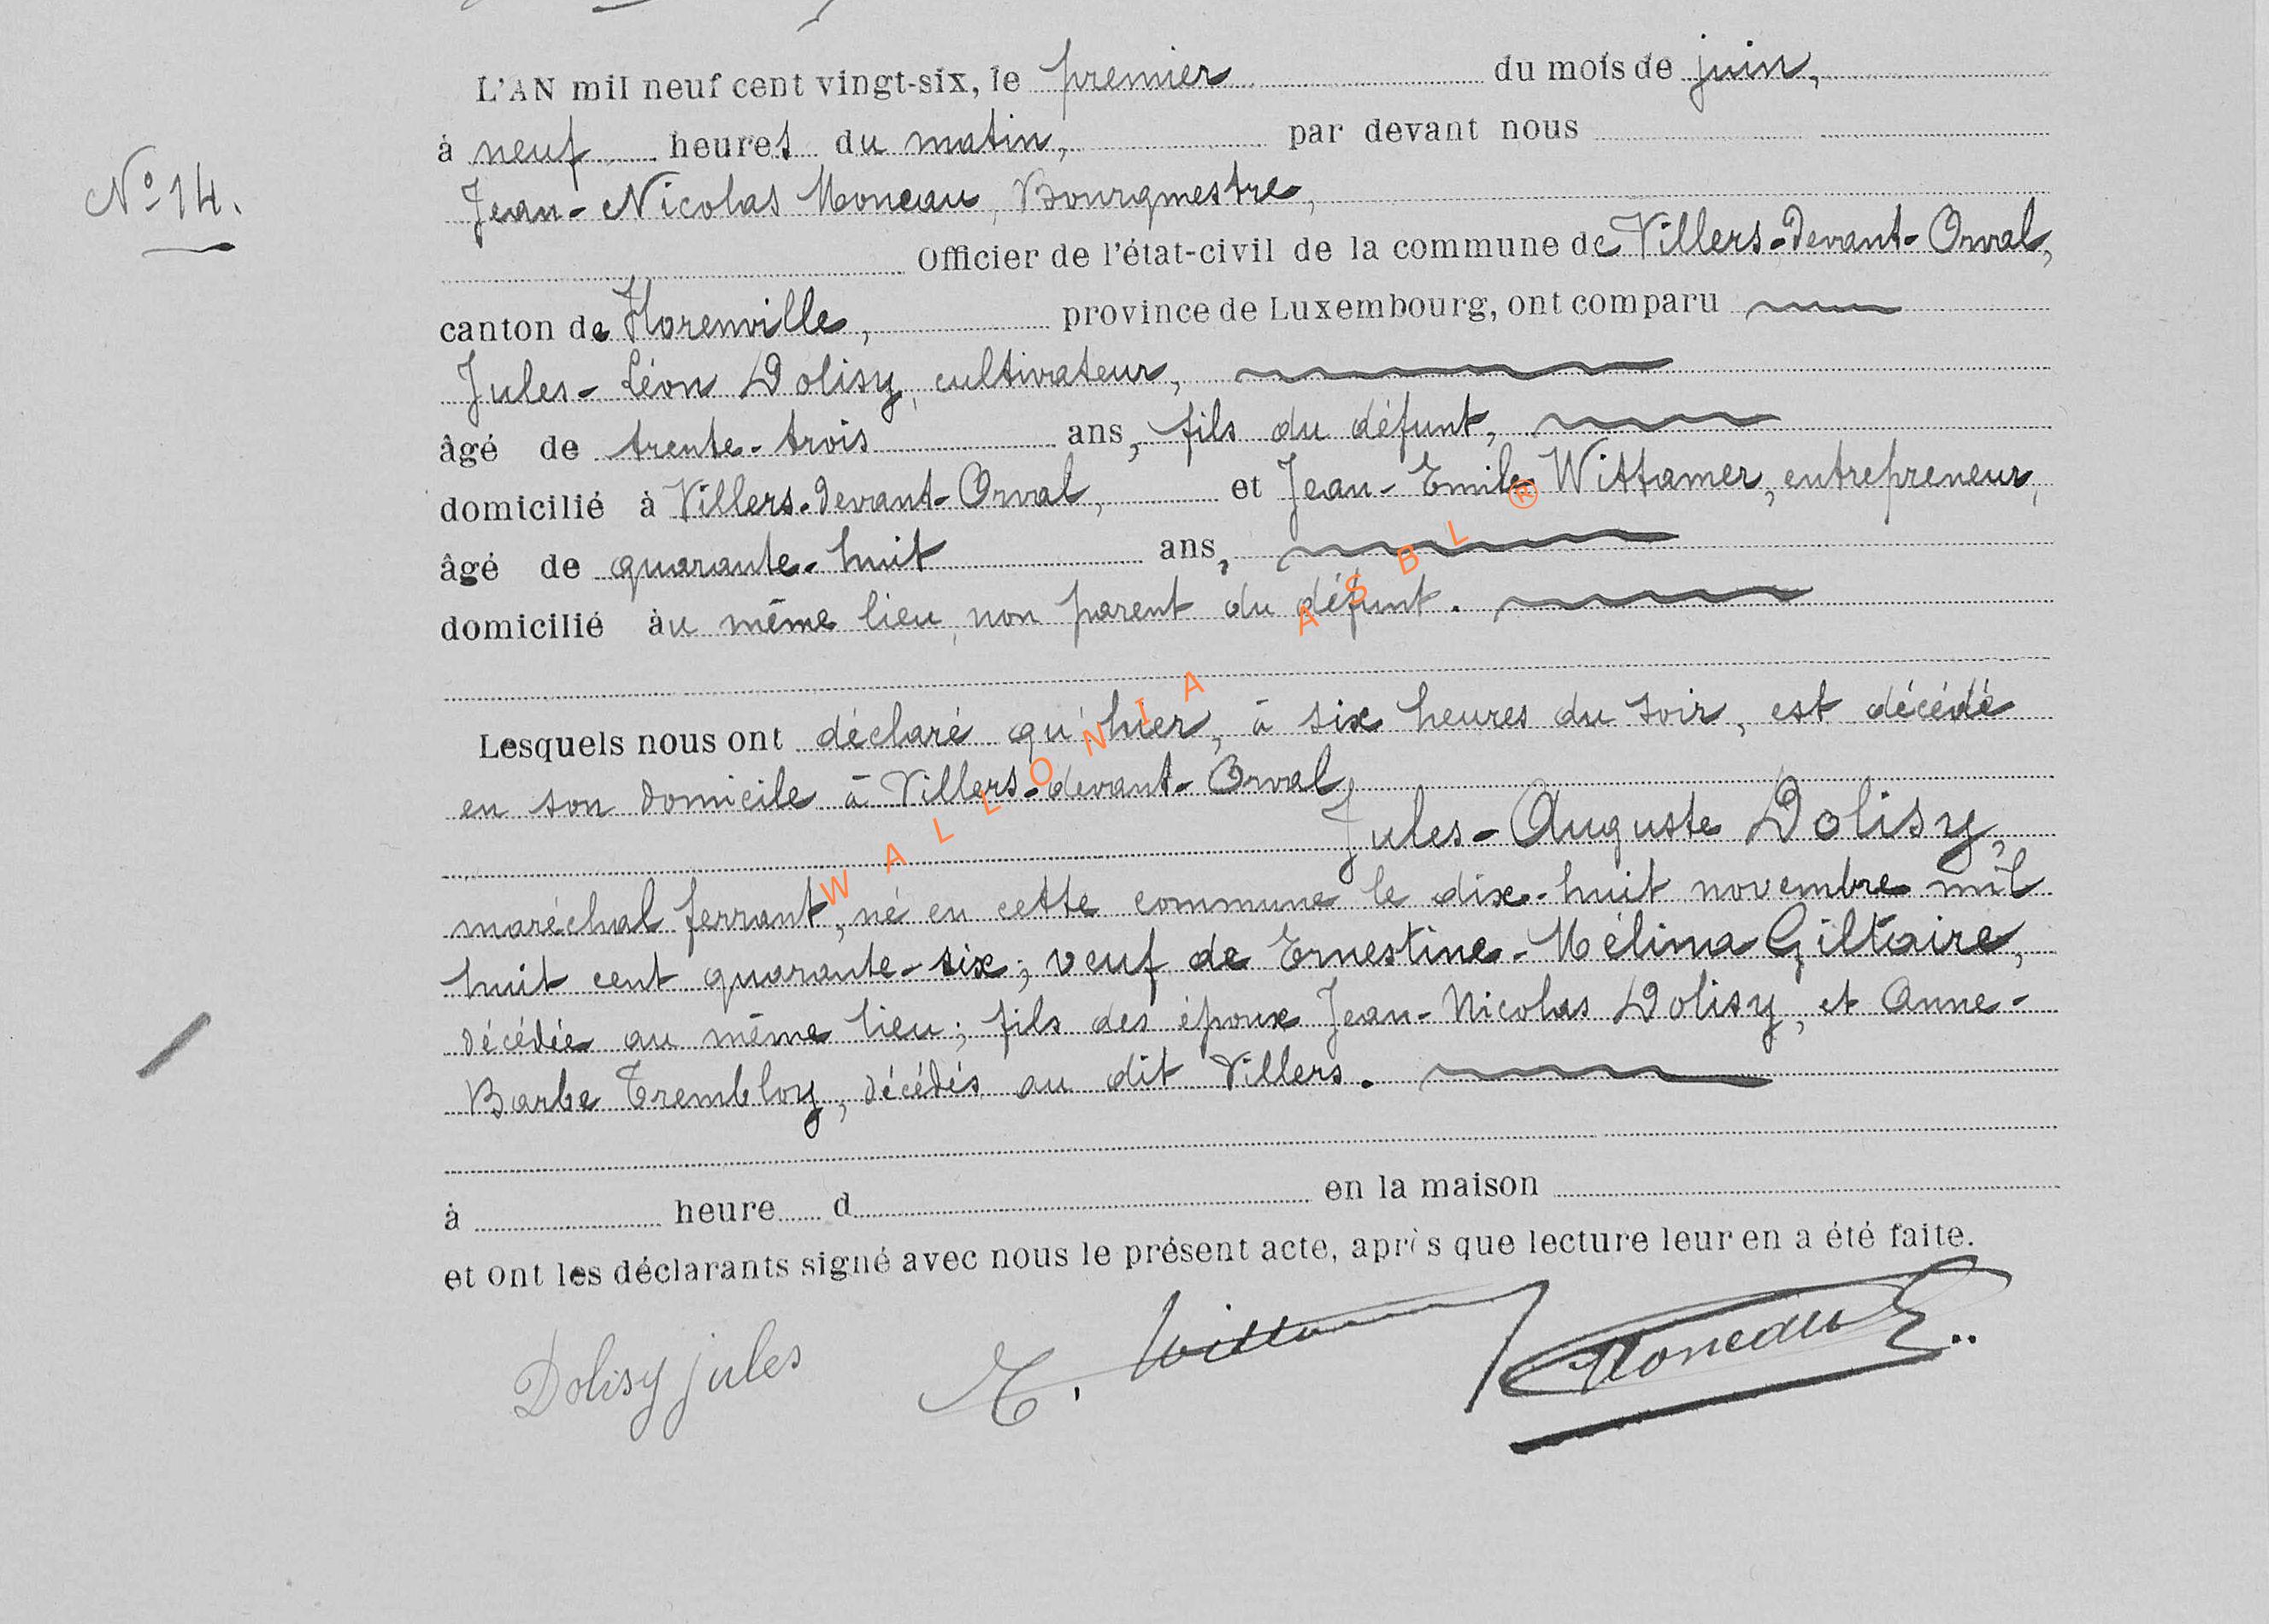 L'AN mil neuf cent vingt-six, le premier du mois de juin,
à neuf heures du matin, par devant nous
N° 14.
Jean-Nicolas Moneau, Bourgmestre,
Officier de l'état-civil de la commune de Villers-devant-Orval,
canton de Florenville, province de Luxembourg, ont comparu
Jules-Léon Dolisy, cultivateur,
âgé de trente-trois ans, fils du défunt,
domicilié à Villers-devant-Orval, et Jean-Emile Wittamer, entrepreneur,
âgé de quarante-huit ans,
domicilié au même lieu, non parent du défunt.
Lesquels nous ont déclaré qu'hier, à six heures du soir, est décédé
en son domicile à Villers-devant-Orval
Jules-Auguste Dolisy,
maréchal ferrant, né en cette commune le dix-huit novembre mil
huit cent quarante-six; veuf de Ernestine-Mélina Giltaire,
décédée au même lieu; fils des époux Jean-Nicolas Dolisy, et Anne-
Barbe Trembloy, décédés au dit Villers.
à heure d en la maison
et ont les déclarants signé avec nous le présent acte, après que lecture leur en a été faite.
Dolisy jules E. Wittamer Moneau
WALLONIA ASBL ®